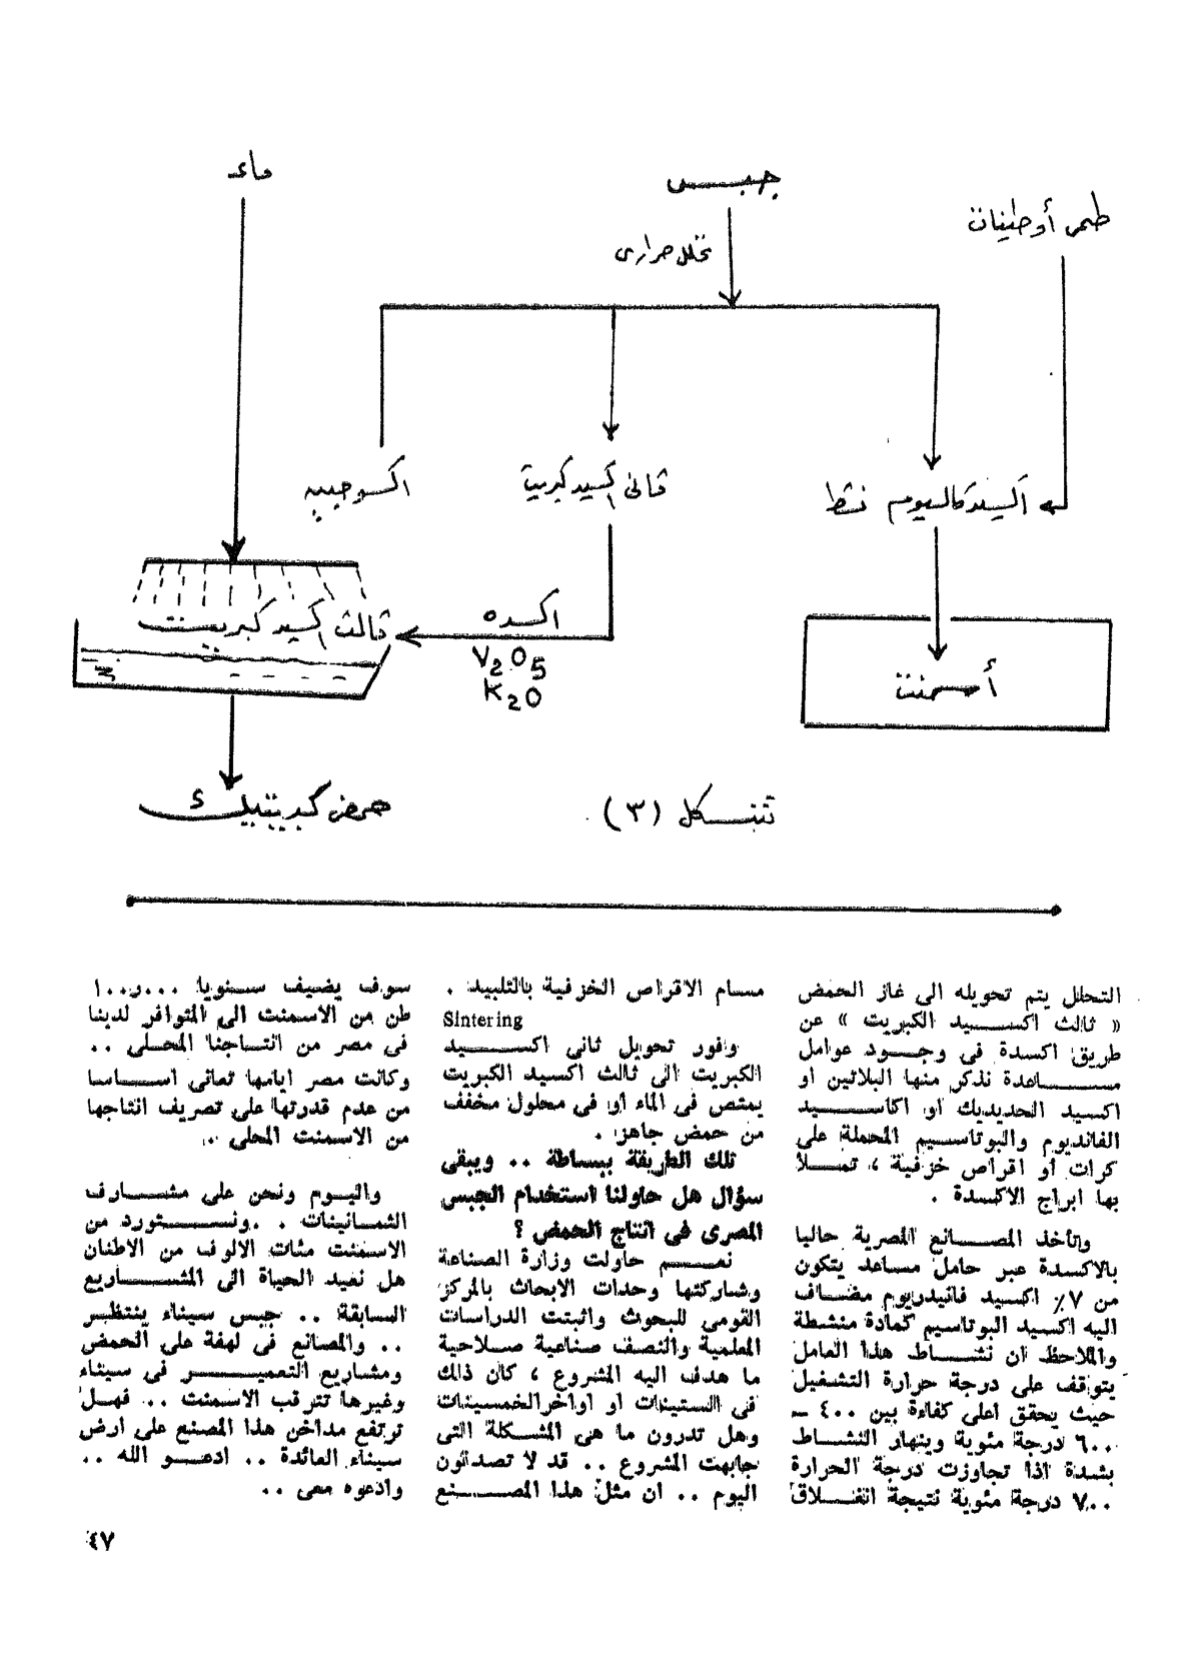 ماء
جبس
طمى أو طينيات
تحلل حرارى
اكسوجيه
ثانى اكسيد كبريت
أكسيد كالسيوم نشط
ثالث اكسيد كبريت
اكسده
V2O5
K2O
أسمنت
حمض كبريتيك
شكل (٣)
التحلل يتم تحويله الى غاز الحمض
« ثالث اكسيد الكبريت » عن
طريق اكسدة فى وجود عوامل
مساعدة نذكر منها البلاتين او
اكسيد الحديديك او اكاسيد
الفانديوم والبوتاسيم المحملة على
كرات او اقراص خزفية ، تملأ
بها ابراج الاكسدة .
وتأخذ المصانع المصرية حاليا
بالاكسدة عبر حامل مساعد يتكون
من ٧٪ اكسيد فانيدريوم مضاف
اليه اكسيد البوتاسيم كمادة منشطة
والملاحظ ان نشاط هذا العامل
يتوقف على درجة حرارة التشغيل
حيث يحقق اعلى كفاءة بين ٤٠٠ –
٦٠٠ درجة مئوية وينهار النشاط
بشدة اذا تجاوزت درجة الحرارة
٧٠٠ درجة مئوية نتيجة انغلاق
مسام الاقراص الخزفية بالتلبيد .
Sintering
وفور تحويل ثانى اكسيد
الكبريت الى ثالث اكسيد الكبريت
يمتص فى الماء أو فى محلول مخفف
من حمض جاهز .
تلك الطريقة ببساطة .. ويبقى
سؤال هل حاولنا استخدام الجبس
المصرى فى انتاج الحمض ؟
نعم حاولت وزارة الصناعة
وشاركتها وحدات الابحاث بالمركز
القومى للبحوث واثبتت الدراسات
المعلمية والنصف صناعية صلاحية
ما هدف اليه المشروع ، كان ذلك
فى الستينات او اواخر الخمسينات
وهل تدرون ما هى المشكلة التى
جابهت المشروع .. قد لا تصدقون
اليوم .. ان مثل هذا المصنع
سوف يضيف سنويا ١٠٠,٠٠٠
طن من الاسمنت الى المتوافر لدينا
فى مصر من انتاجنا المحلى ..
وكانت مصر ايامها تعانى اساسا
من عدم قدرتها على تصريف انتاجها
من الاسمنت المحلى .
واليوم ونحن على مشارف
الثمانينات . .ونستورد من
الاسمنت مئات الالوف من الاطنان
هل نعيد الحياة الى المشاريع
السابقة .. جبس سيناء ينتظر
.. والمصانع فى لهفة على الحمض
ومشاريع التعمير فى سيناء
وغيرها تترقب الاسمنت .. فهل
ترتفع مداخن هذا المصنع على ارض
سيناء العائدة .. ادعو الله ..
وادعوه معى ..
٤٧